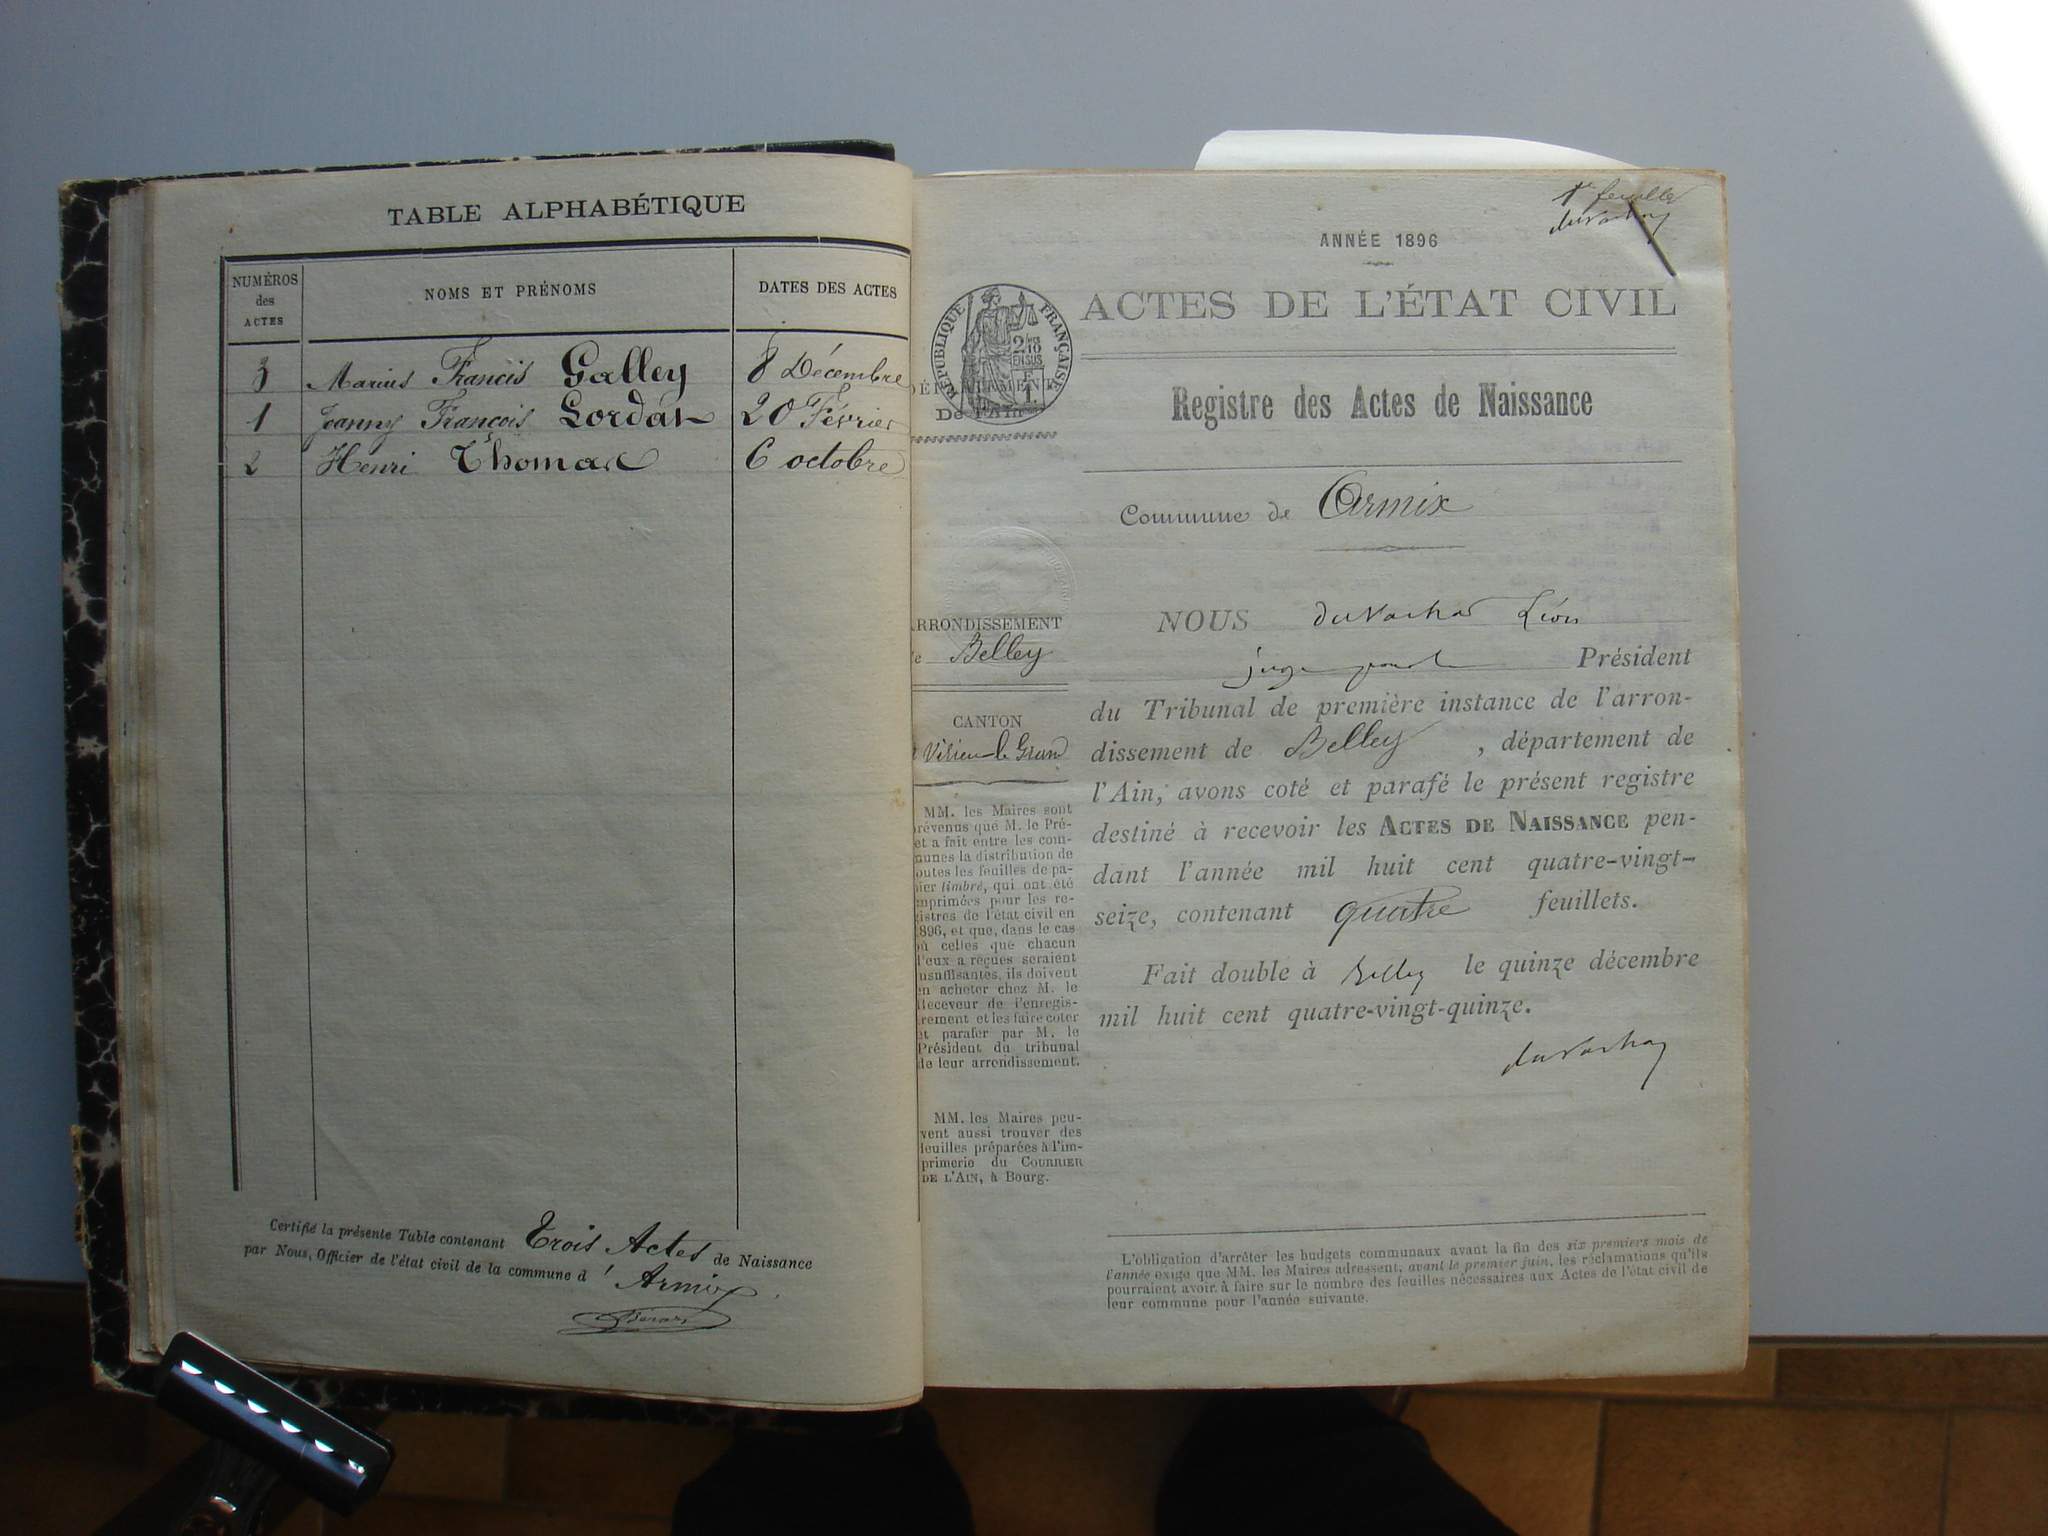 TABLE ALPHABÉTIQUE
NUMÉROS des ACTES
NOMS ET PRÉNOMS
DATES DES ACTES
3 Marius Francis Galley 8 Décembre
1 Jeanny François Lordat 20 Février
2 Henri Thomas 6 octobre
Certifié la présente Table contenant Trois Actes de Naissance
par Nous, Officier de l'état civil de la commune d' Armix
1re feuille
ANNÉE 1896
ACTES DE L'ÉTAT CIVIL
RÉPUBLIQUE FRANÇAISE
2/10 EN SUS
DÉPARTEMENT
De l'Ain
Registre des Actes de Naissance
Commune de Armix
ARRONDISSEMENT
de Belley
CANTON
Virieu-le-Grand
MM. les Maires sont
prévenus que M. le Pré-
et a fait entre les com-
munes la distribution de
toutes les feuilles de pa-
pier timbré, qui ont été
imprimées pour les re-
gistres de l'état civil en
1896, et que, dans le cas
où celles que chacun
d'eux a reçues seraient
insuffisantes, ils doivent
en acheter chez M. le
Receveur de l'enregis-
trement et les faire coter
et parafer par M. le
Président du tribunal
de leur arrondissement.
MM. les Maires peu-
vent aussi trouver des
feuilles préparées à l'im-
primerie du COURRIER
DE L'AIN, à Bourg.
NOUS Léon
juge Président
du Tribunal de première instance de l'arron-
dissement de Belley, département de
l'Ain, avons coté et parafé le présent registre
destiné à recevoir les ACTES DE NAISSANCE pen-
dant l'année mil huit cent quatre-vingt-
seize, contenant quatre feuillets.
Fait double à Belley le quinze décembre
mil huit cent quatre-vingt-quinze.
L'obligation d'arrêter les budgets communaux avant la fin des six premiers mois de
l'année exige que MM. les Maires adressent, avant le premier juin, les réclamations qu'ils
pourraient avoir à faire sur le nombre des feuilles nécessaires aux Actes de l'état civil de
leur commune pour l'année suivante.